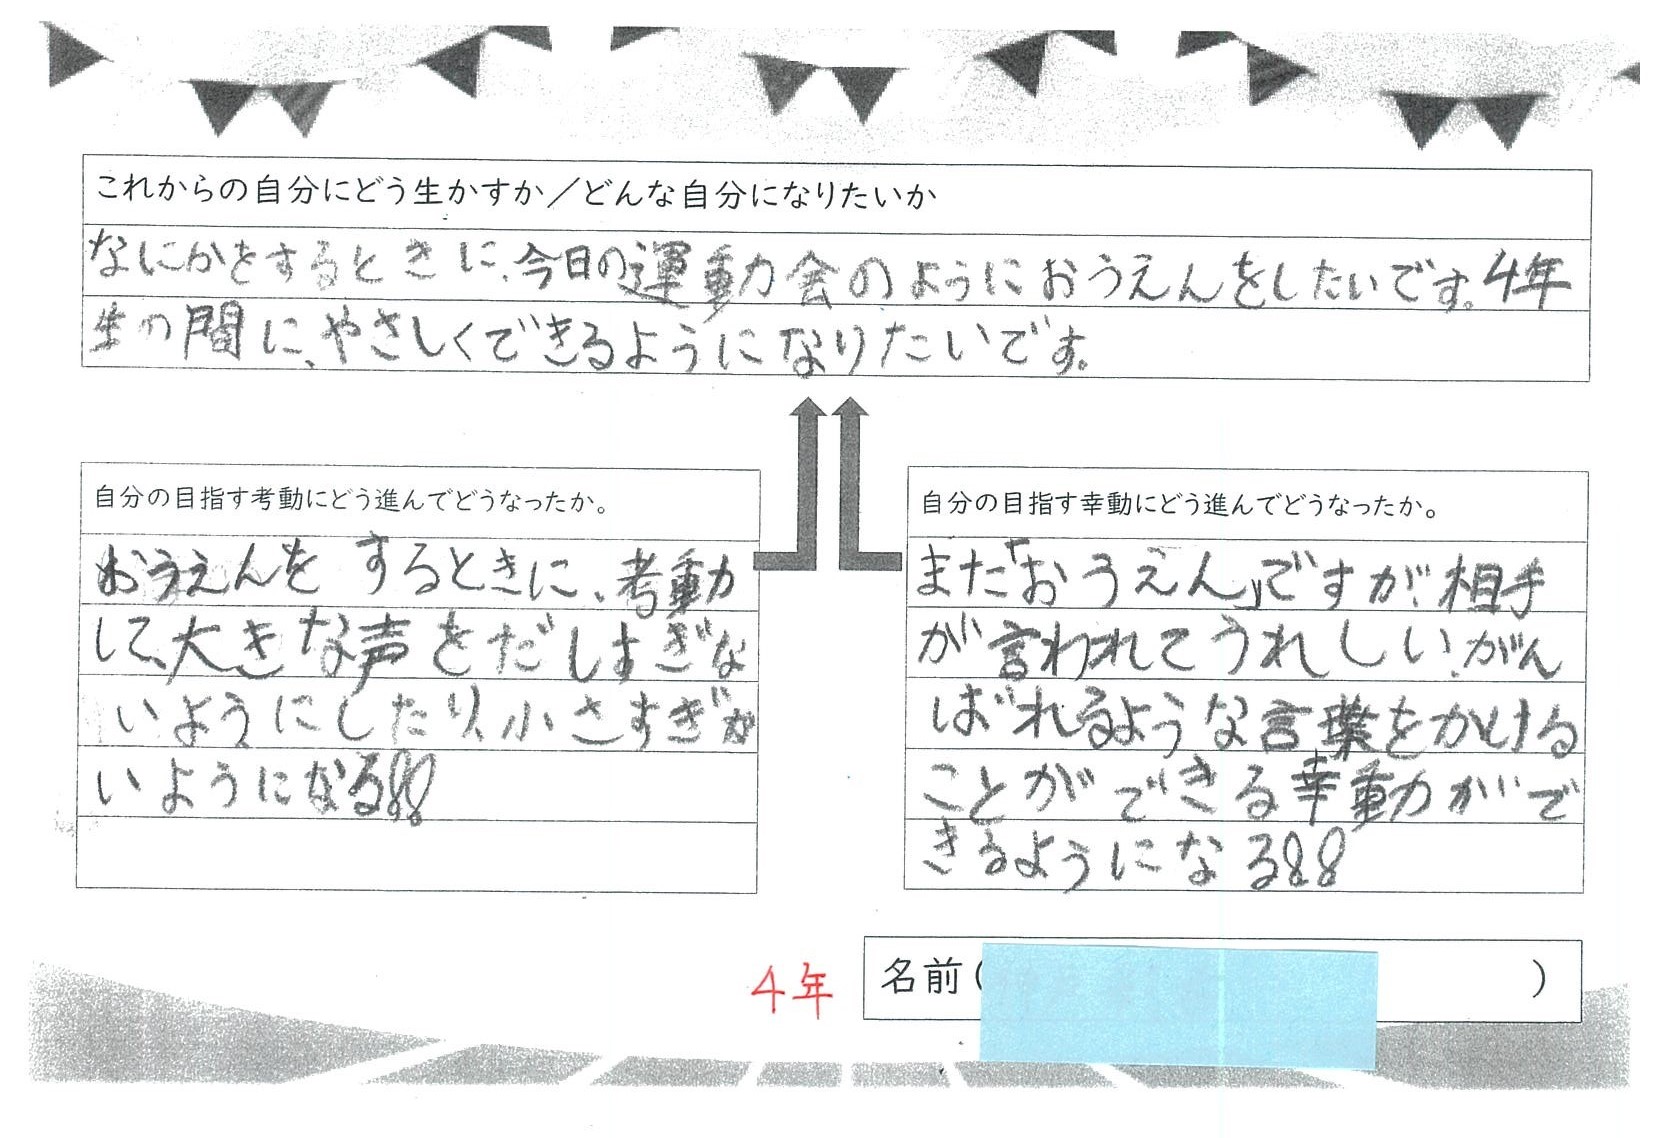 これからの自分にどう生かすか／どんな自分になりたいか
なにかをするときに、今日の運動会のようにおうえんをしたいです。4年
生の間に、やさしくできるようになりたいです。
自分の目指す考動にどう進んでどうなったか。
おうえんを するときに、考動
して、大きな声をだしすぎな
いようにしたり、小さすぎな
いようになる!!
自分の目指す幸動にどう進んでどうなったか。
また「おうえん」ですが、相手
が言われてうれしい、がん
ばれるような言葉をかける
ことができる幸動がで
きるようになる!!
4年
名前( )